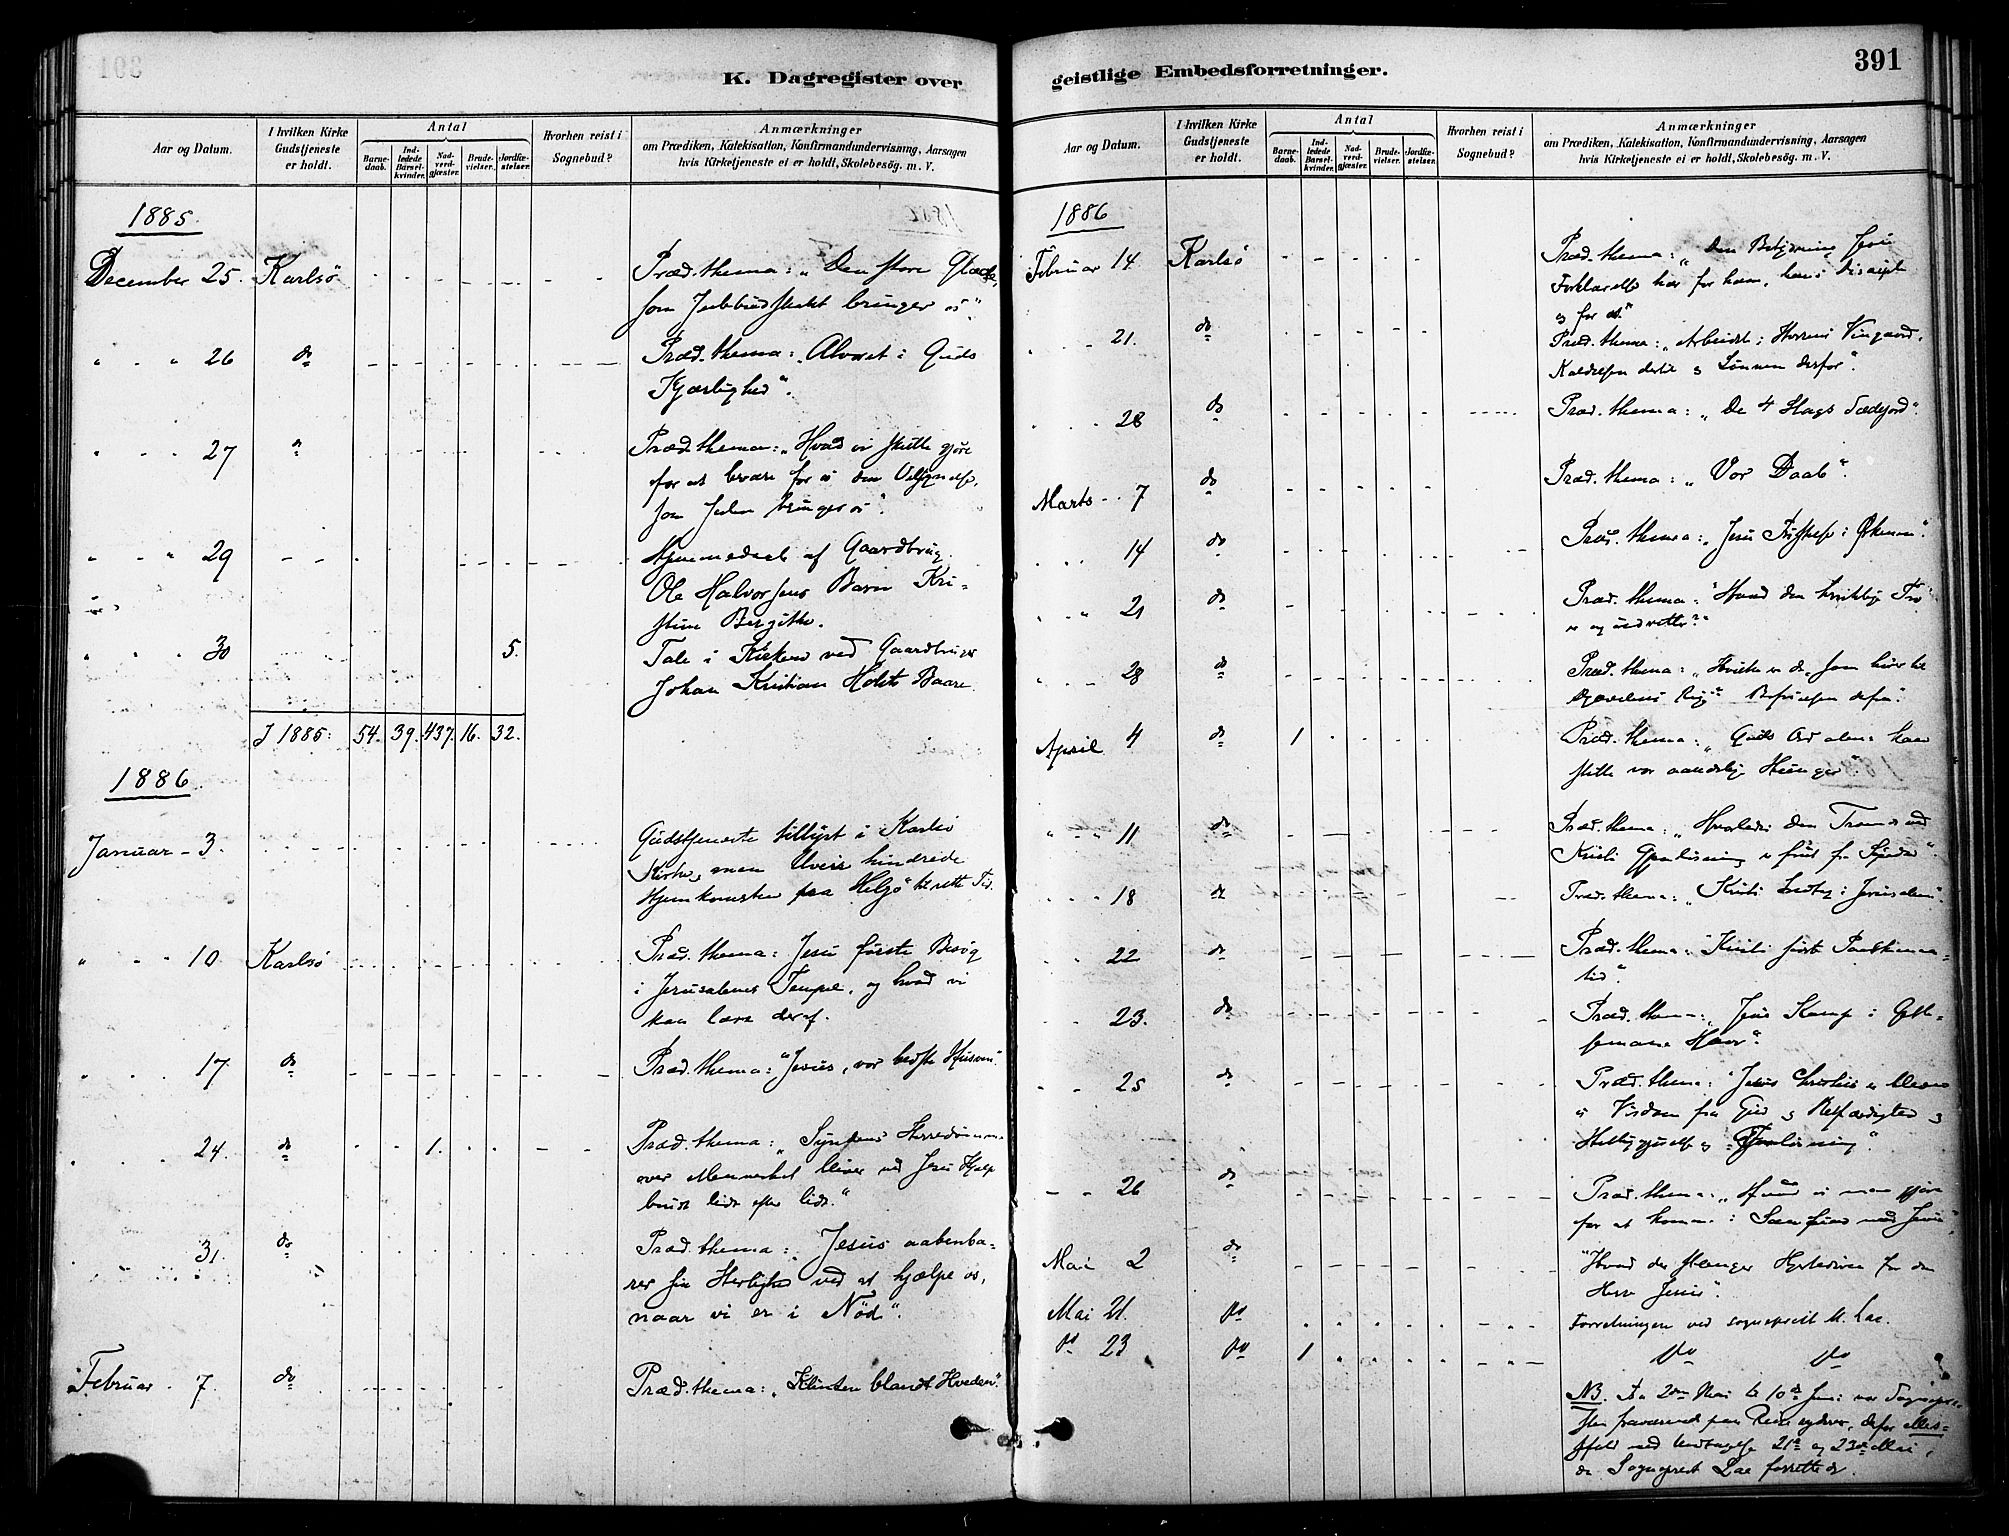 K. Dagregister over
Aar og Datum.
I hvilken Kirke Gudstjeneste er holdt.
Antal
Barne-daab.
Ind-ledede Barsel-kvinder.
Nad-verd-gjæster.
Brude-vielser.
Jordfæ-stelser.
Hvorhen reist i Sognebud?
Anmærkninger
om Prædiken, Katekisation, Konfirmandundervisning, Aarsagen
hvis Kirketjeneste ei er holdt, Skolebesøg. m. V.
1885
December 25. Karlsö Præd. thema: „Den store Glæde,
som Julebudskabet bringer os“.
" " " 26 do Præd. thema: „Alvoret i Guds
Kjærlighed“.
" " " 27 " Præd. thema: „Hvad vi skulle gjöre
for at bevare for os den Velsignelse,
som Julen bringer os“.
" " " 29 Hjemmedaab af Gaardbrug.
Ole Halvorsens Barn Kri-
stine Birgitte.
" " " 30 5. Tale i Kirken ved Gaardbruger
Johan Kristian Holsts Baare.
I 1885: 54. 39. 437. 16. 32.
1886
Januar - 3. Gudstjeneste tillyst i Karlsö
Kirke, men Uveir hindrede
Hjemkomsten fra Helgö til rette Tid.
" " 10 Karlsö Præd. thema: Jesu förste Besög
i Jerusalems Tempel, og hvad vi
kan lære deraf.
" " 17. do Præd. thema: "Jesus, vor bedste Husven".
" " 24. do 1. Præd. thema: „Syndens Herredömme
over Mennesket bliver ved Jesu Hjælp
brudt lidt efter lidt.“
" " 31. do Præd. thema: „Jesus aabenba-
rer sin Herlighed ved at hjælpe os,
naar vi er i Nöd“.
Februar 7. do Præd. thema: „Klinten blandt Hveden“.
geistlige Embedsforretninger.
391
Aar og Datum.
I hvilken Kirke Gudstjeneste er holdt.
Antal
Barne-daab.
Ind-ledede Barsel-kvinder.
Nad-verd-gjæster.
Brude-vielser.
Jordfæ-stelser.
Hvorhen reist i Sognebud?
Anmærkninger
om Prædiken, Katekisation, Konfirmandundervisning, Aarsagen
hvis Kirketjeneste ei er holdt, Skolebesøg. m. V.
1886
Februar 14 Karlsö Præd. thema: „Den Betydning Jesu
Forklarelse har for ham, hans Disciple
og for os“
" " 21. do Præd. thema: „Arbeidet i Herrens Vingaard,
Kaldelsen dertil og Lönnen derfor“.
" " 28 do Præd. thema: „De 4 Slags Sædejord“.
Marts - 7 do Præd. thema: „Vor Daab“.
" " 14 do Præd. thema: „Jesu Fristelse i Örkenen“.
" " 21 do Præd. thema: "Hvad den kristelige Tro
er og udretter?"
" " 28 do Præd. thema: „Hvilke er de som hörer til
Djævelens Rige" Befrielsen derfra“.
April 4 do 1 Præd. thema: „Guds Ord alene kan
stille vor aandelige Hunger“.
" " 11 do Præd. thema: „Hvorledes den Troende ved
Kristi Gjenlösning er friet fra Synden“.
" " 18 do Præd. thema: „Kristi Indtog i Jerusalem“.
" " 22 do Præd. thema: "Kristi sidste Paaskemaal-
tid“.
" " 23. do Præd. thema: „Jesu Kamp i Geth-
semane Have“.
" " 25 do Præd. thema: "Jesus Christus er bleven
os Visdom fra Gud og Retfærdighed og
Helliggjörelse og Gjenlösning“.
" " 26 do Præd. thema: „Hvad vi maa gjöre
for at komme i Samfund med Jesus“.
Mai 2 do "Hvad der stænger Hjertedören for den
Herre Jesus“.
Mai 21. do Forretningen ved sogneprest M. Lae.
do 23 do 1 do do
NB. Fra 2den Mai til 10de Juni var Sognepre-
sten fraværende paa Reise sydover, derfor Messe-
fald med Undtagelse 21de og 23de Mai,
da Sogneprest Lae forrettede.